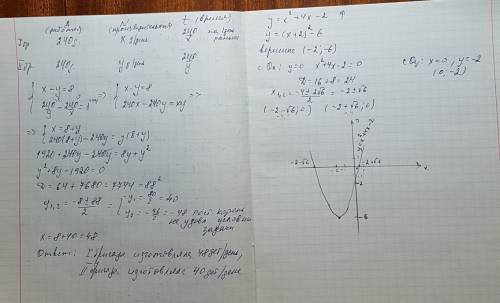 A N t (время)
(работа) (производительность)
I бр 240g. x g/день 240/x на 1 день раньше
II бр 240g. y g/день 240/y
{ x-y=8
240/y - 240/x = 1
=> { x-y=8
240x-240y=xy =>
=> { x=8+y
240(8+y)-240y=y(8+y)
1920+240y-240y=8y+y²
y²+8y-1920=0
D=64+7680=7744=88²
y₁,₂ = (-8±88)/2 = [ y₁ = 80/2 = 40
y₂ = -96/2 = -48 пост. корень
не удовл. условию
задачи
x=8+40=48
Ответ: I бригада изготовляла 48 дет/день,
II бригада изготовляла 40 дет/день
y=x²+4x-2
y=(x+2)²-6
вершина (-2;-6)
с Ox: y=0 x²+4x-2=0
D=16+8=24
x₁,₂ = (-4±2√6)/2 = -2±√6
(-2-√6; 0) (-2+√6; 0)
с Oy: x=0, y=-2
(0;-2)
y
y=x²+4x-2
-2-√6
-2+√6
x
-2
-6